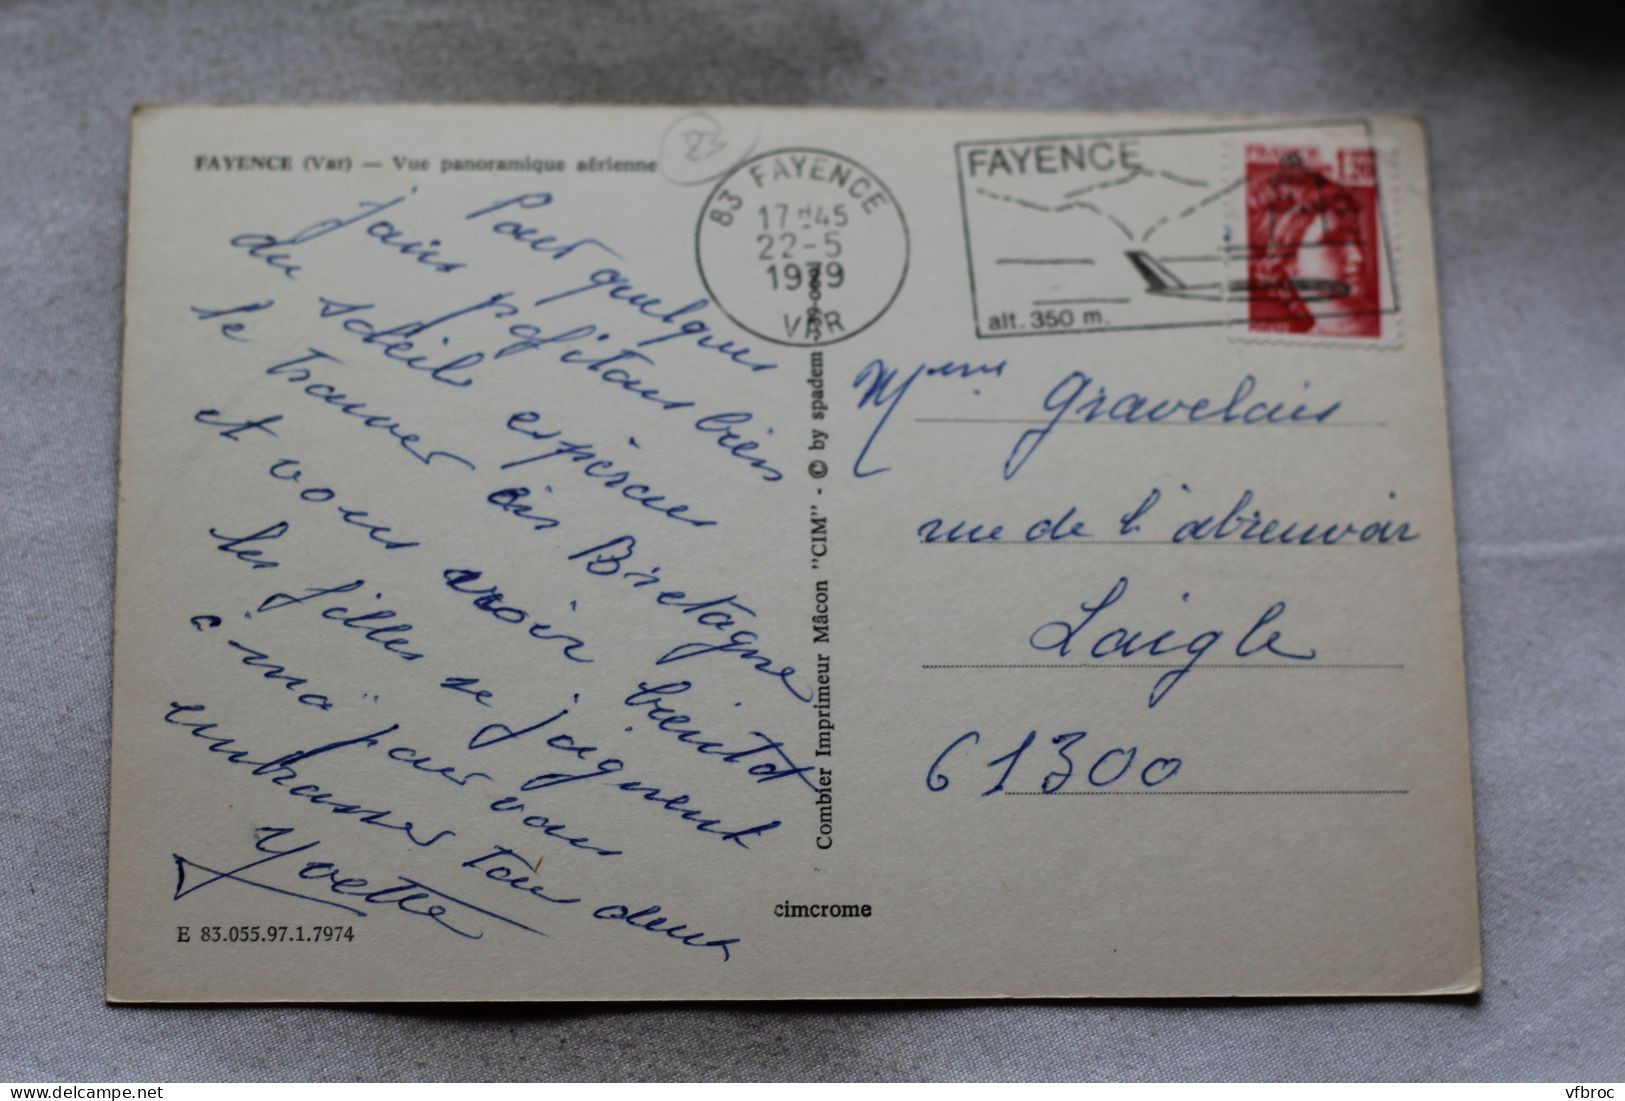 FAYENCE (Var) — Vue panoramique aérienne
23
Pour quelques
jours profitons bien
du soleil espérons
le trouver en Bretagne
et vous avoir bientôt
les filles se joignent
à moi pour vous
embrasser tous deux
Yvette
E 83.055.97.1.7974
83 FAYENCE
17H45
22-5
1979
VAR
FAYENCE
alt. 350 m.
FRANCE
1,20
Combier Imprimeur Mâcon "CIM" - © by spadem
cimcrome
Mme Gravelais
rue de l'abreuvoir
Laigle
61300
delcampe.net
vfbroc